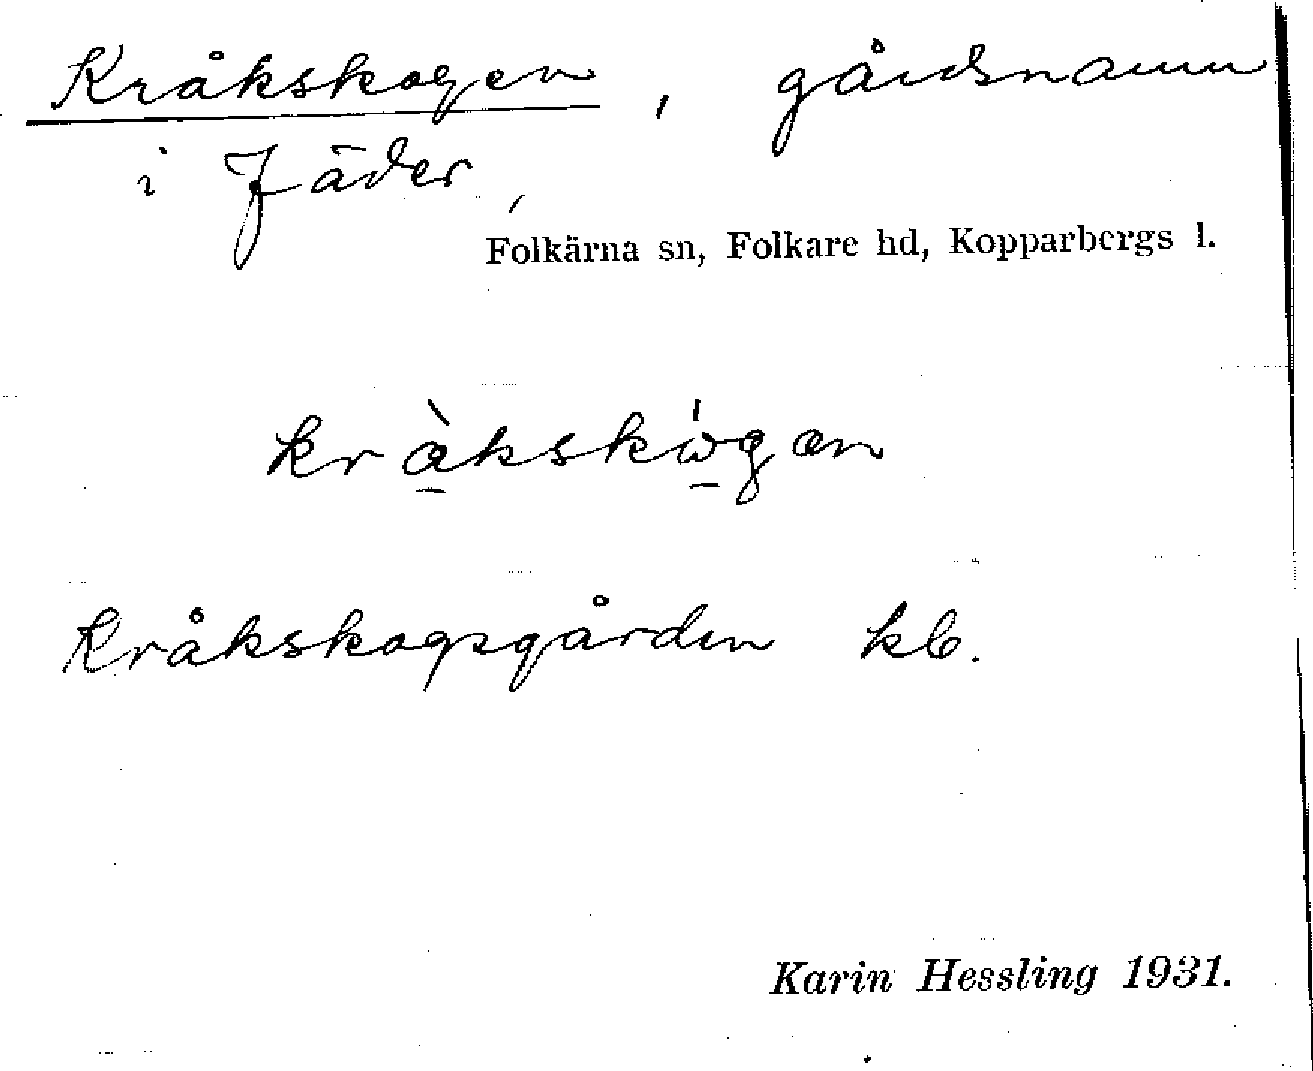 Kråkskogen, gårdsnamn
i Jäder,
Folkärna sn, Folkare hd, Kopparbergs l.
kràkskógan
Kråkskogsgården kb.
Karin Hessling 1931.